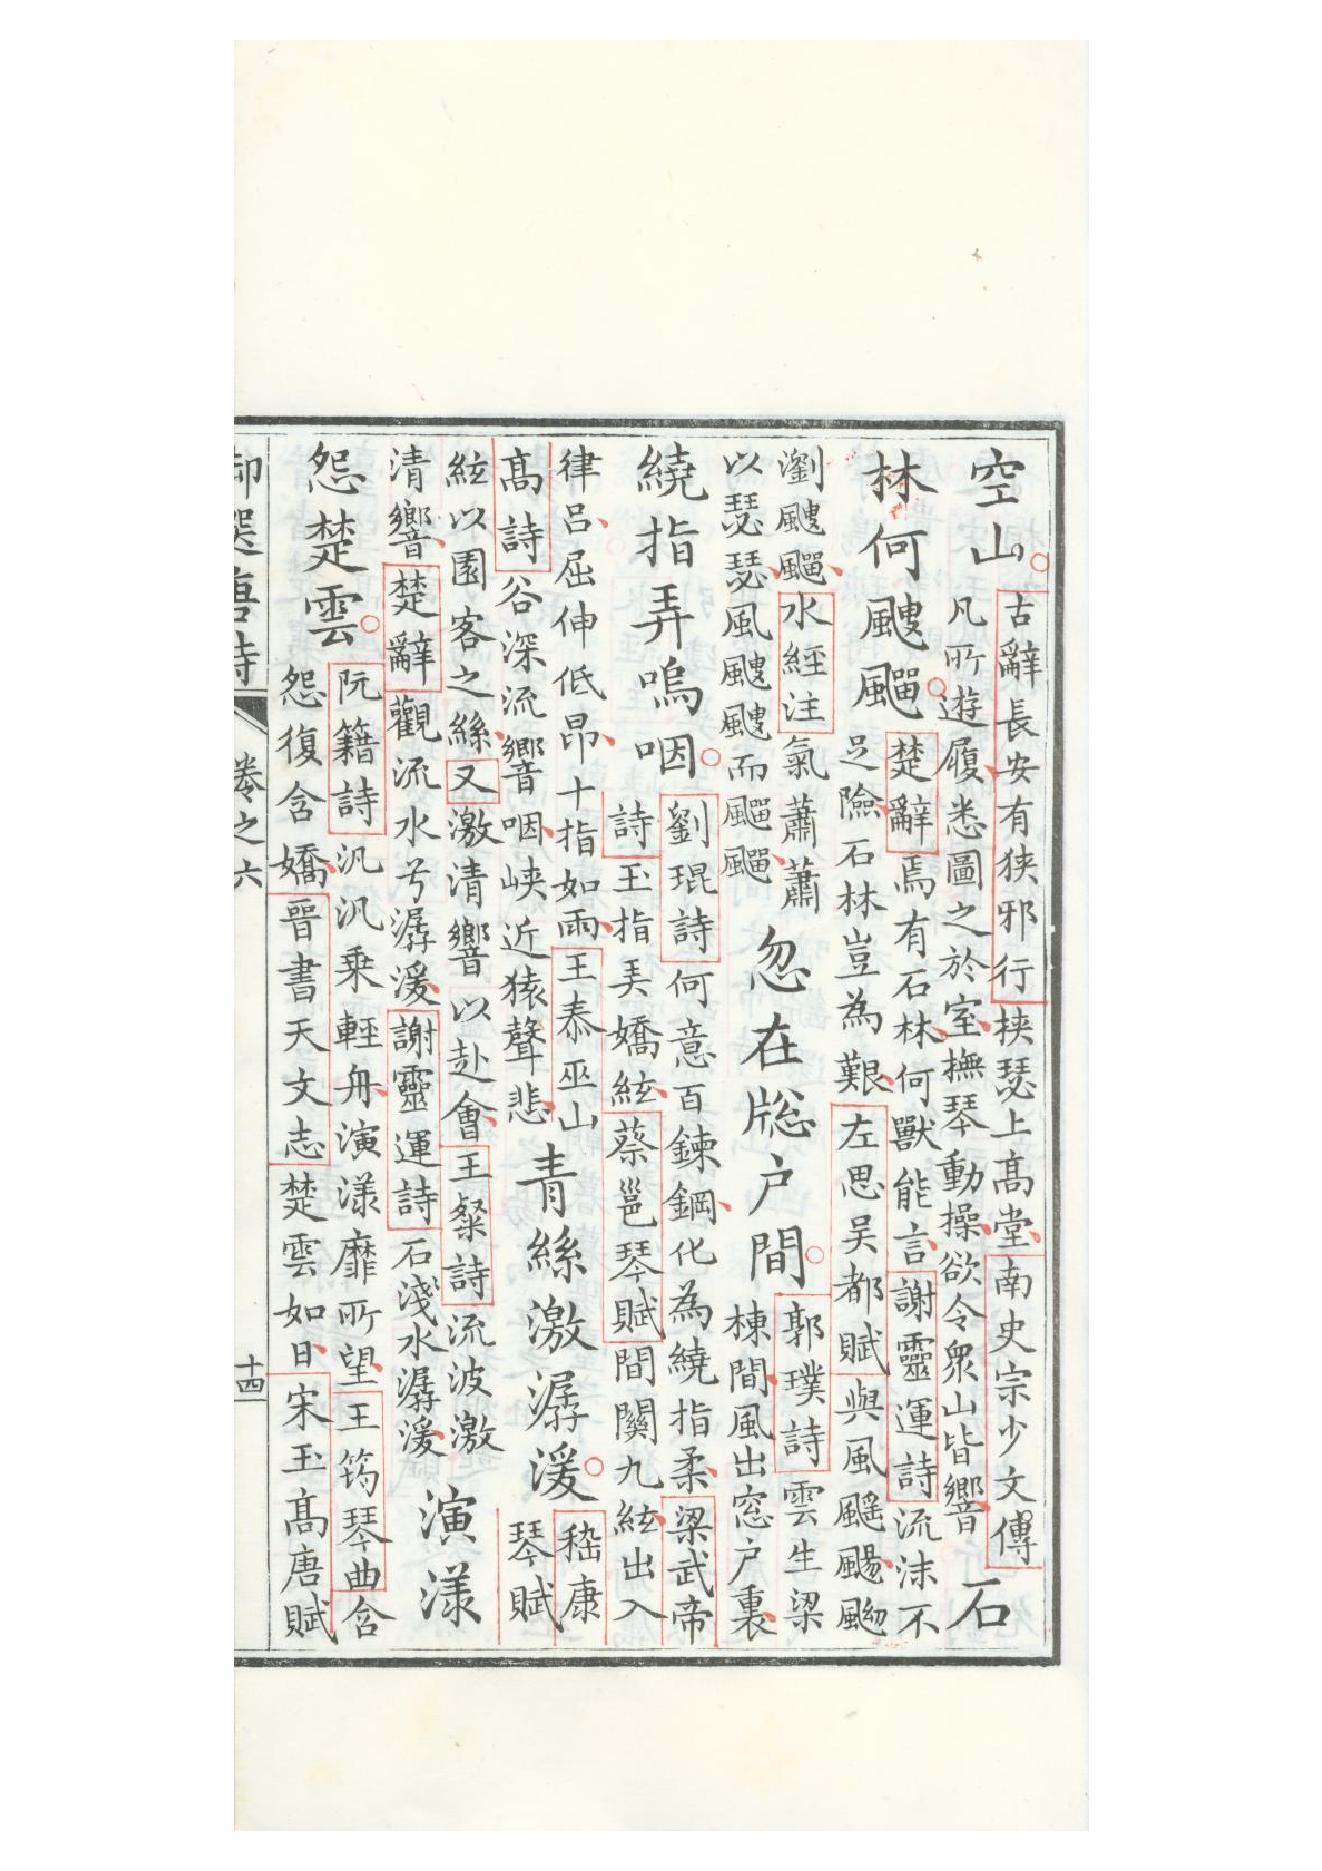 空山
古辭長安有狹邪行挾瑟上高堂南史宗少文傳
凡所遊履悉圖之於室撫琴動操欲令衆山皆響
石
林何颼飀
楚辭焉有石林何獸能言謝靈運詩流沫不
足險石林豈為艱左思吴都賦與風飖颺䬀
瀏颼飀水經注氣蕭蕭
以瑟瑟風颼颼而飀飀
忽在牎户間
郭璞詩雲生梁
棟間風出窓户裏
繞指弄嗚咽
劉琨詩何意百鍊鋼化為繞指柔梁武帝
詩玉指弄嬌絃蔡邕琴賦間關九絃出入
律吕屈伸低昂十指如雨王泰巫山
高詩谷深流響咽峽近猿聲悲
青絲激潺湲
嵇康
琴賦
絃以園客之絲又激清響以赴會王粲詩流波激
清響楚辭觀流水兮潺湲謝靈運詩石淺水潺湲
演漾
怨楚雲
阮籍詩汎汎乘輕舟演漾靡所望王筠琴曲含
怨復含嬌晉書天文志楚雲如日宋玉高唐賦
御選唐詩
卷之六
十四